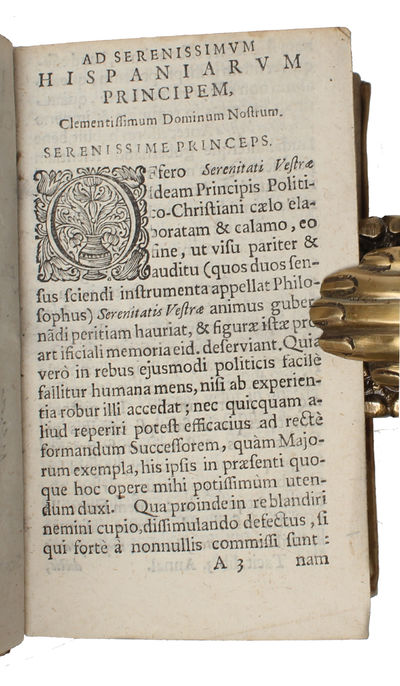 AD SERENISSIMVM
HISPANIARVM
PRINCIPEM,
Clementiſſimum Dominum Noſtrum.
SERENISSIME PRINCEPS.
Offero Serenitati Veſtræ
ideam Principis Politi-
co-Chriſtiani cælo ela-
boratam & calamo, eo
fine, ut viſu pariter &
auditu (quos duos ſen-
ſus ſciendi inſtrumenta appellat Philo-
ſophus) Serenitatis Veſtræ animus guber
nãdi peritiam hauriat, & figuræ iſtæ pro
art ificiali memoria eid. deſerviant. Quia
verò in rebus ejuſmodi politicis facilè
fallitur humana mens, niſi ab experien-
tia robur illi accedat; nec quicquam a-
liud reperiri poteſt efficacius ad rectè
formandum Succeſſorem, quàm Majo-
rum exempla, his ipſis in præſenti quo-
que hoc opere mihi potiſſimùm uten-
dum duxi. Qua proinde in re blandiri
nemini cupio, diſſimulando defectus, ſi
qui fortè à nonnullis commiſſi ſunt:
A 3 nam